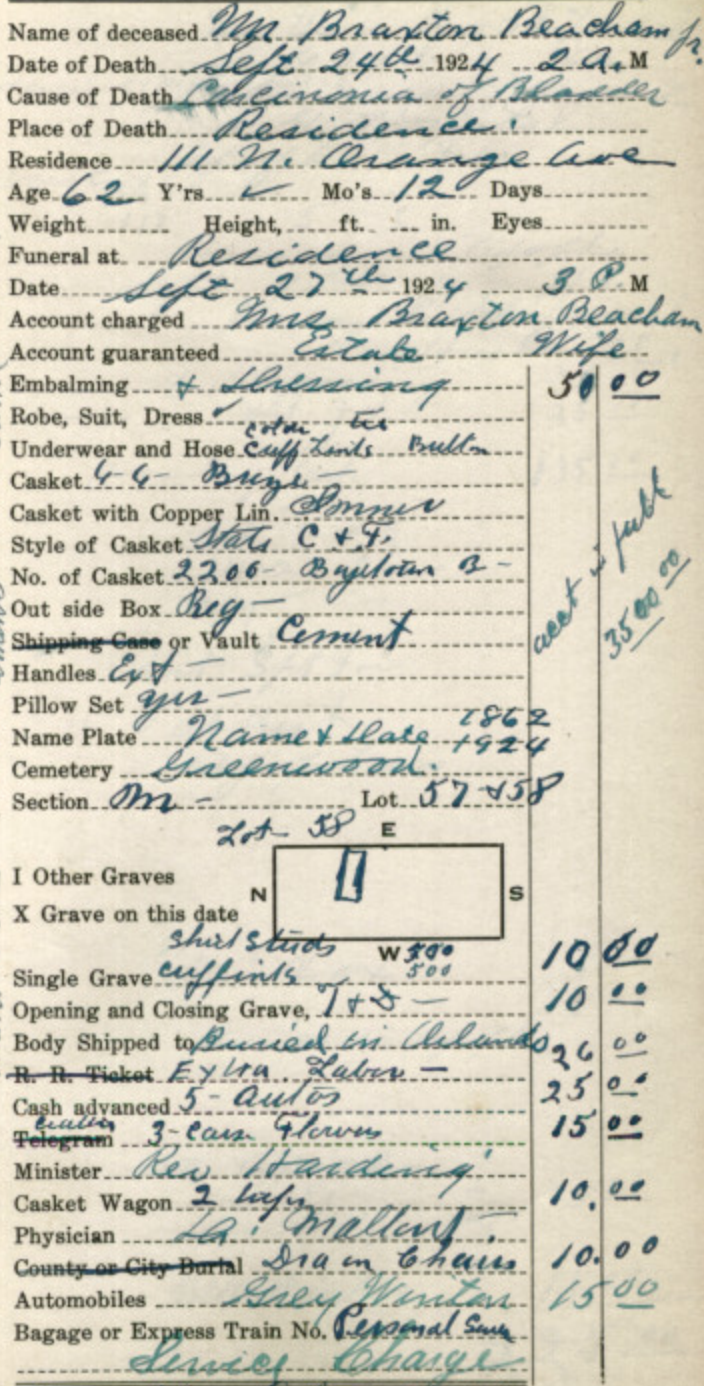 Name of deceased Mr Braxton Beacham Jr.
Date of Death Sept 24th 1924 2 A. M
Cause of Death Carcinonia of Bladder
Place of Death Residence.
Residence 111 N. Orange Ave
Age 62 Y'rs ✓ Mo's 12 Days
Weight Height, ft. in. Eyes
Funeral at Residence
Date Sept 27th 1924 3 P M
Account charged Mrs Braxton Beacham
Account guaranteed Estate Wife
Embalming & Dressing 50 00
Robe, Suit, Dress ✓
Underwear and Hose Cuff Links Button
Casket 6-6
Casket with Copper Lin. Inner
State C & F.
Style of Casket
No. of Casket 2206- B-
Out side Box Reg-
Shipping Case or Vault Cement
Handles Ext-
Pillow Set yes-
Name Plate Name & Date 1862
1924
Cemetery Greenwood.
Section M- Lot 57 & 58
acct in full
3500 00
Lot 58 E
I Other Graves
N S
X Grave on this date
Shirt Studs W 500
Single Grave cufflinks 500 10 00
Opening and Closing Grave, T & D- 10 00
Body Shipped to Buried in Orlando 26 00
R. R. Ticket Extra Labor-
Cash advanced 5- Autos 25 00
Telegram 3- Flowers 15 00
Minister Rev Harding
Casket Wagon 2 10.00
Physician Dr. Mallory
County or City Burial Chairs 10.00
Automobiles Grey Winton 15 00
Bagage or Express Train No. Personal
Service Charge